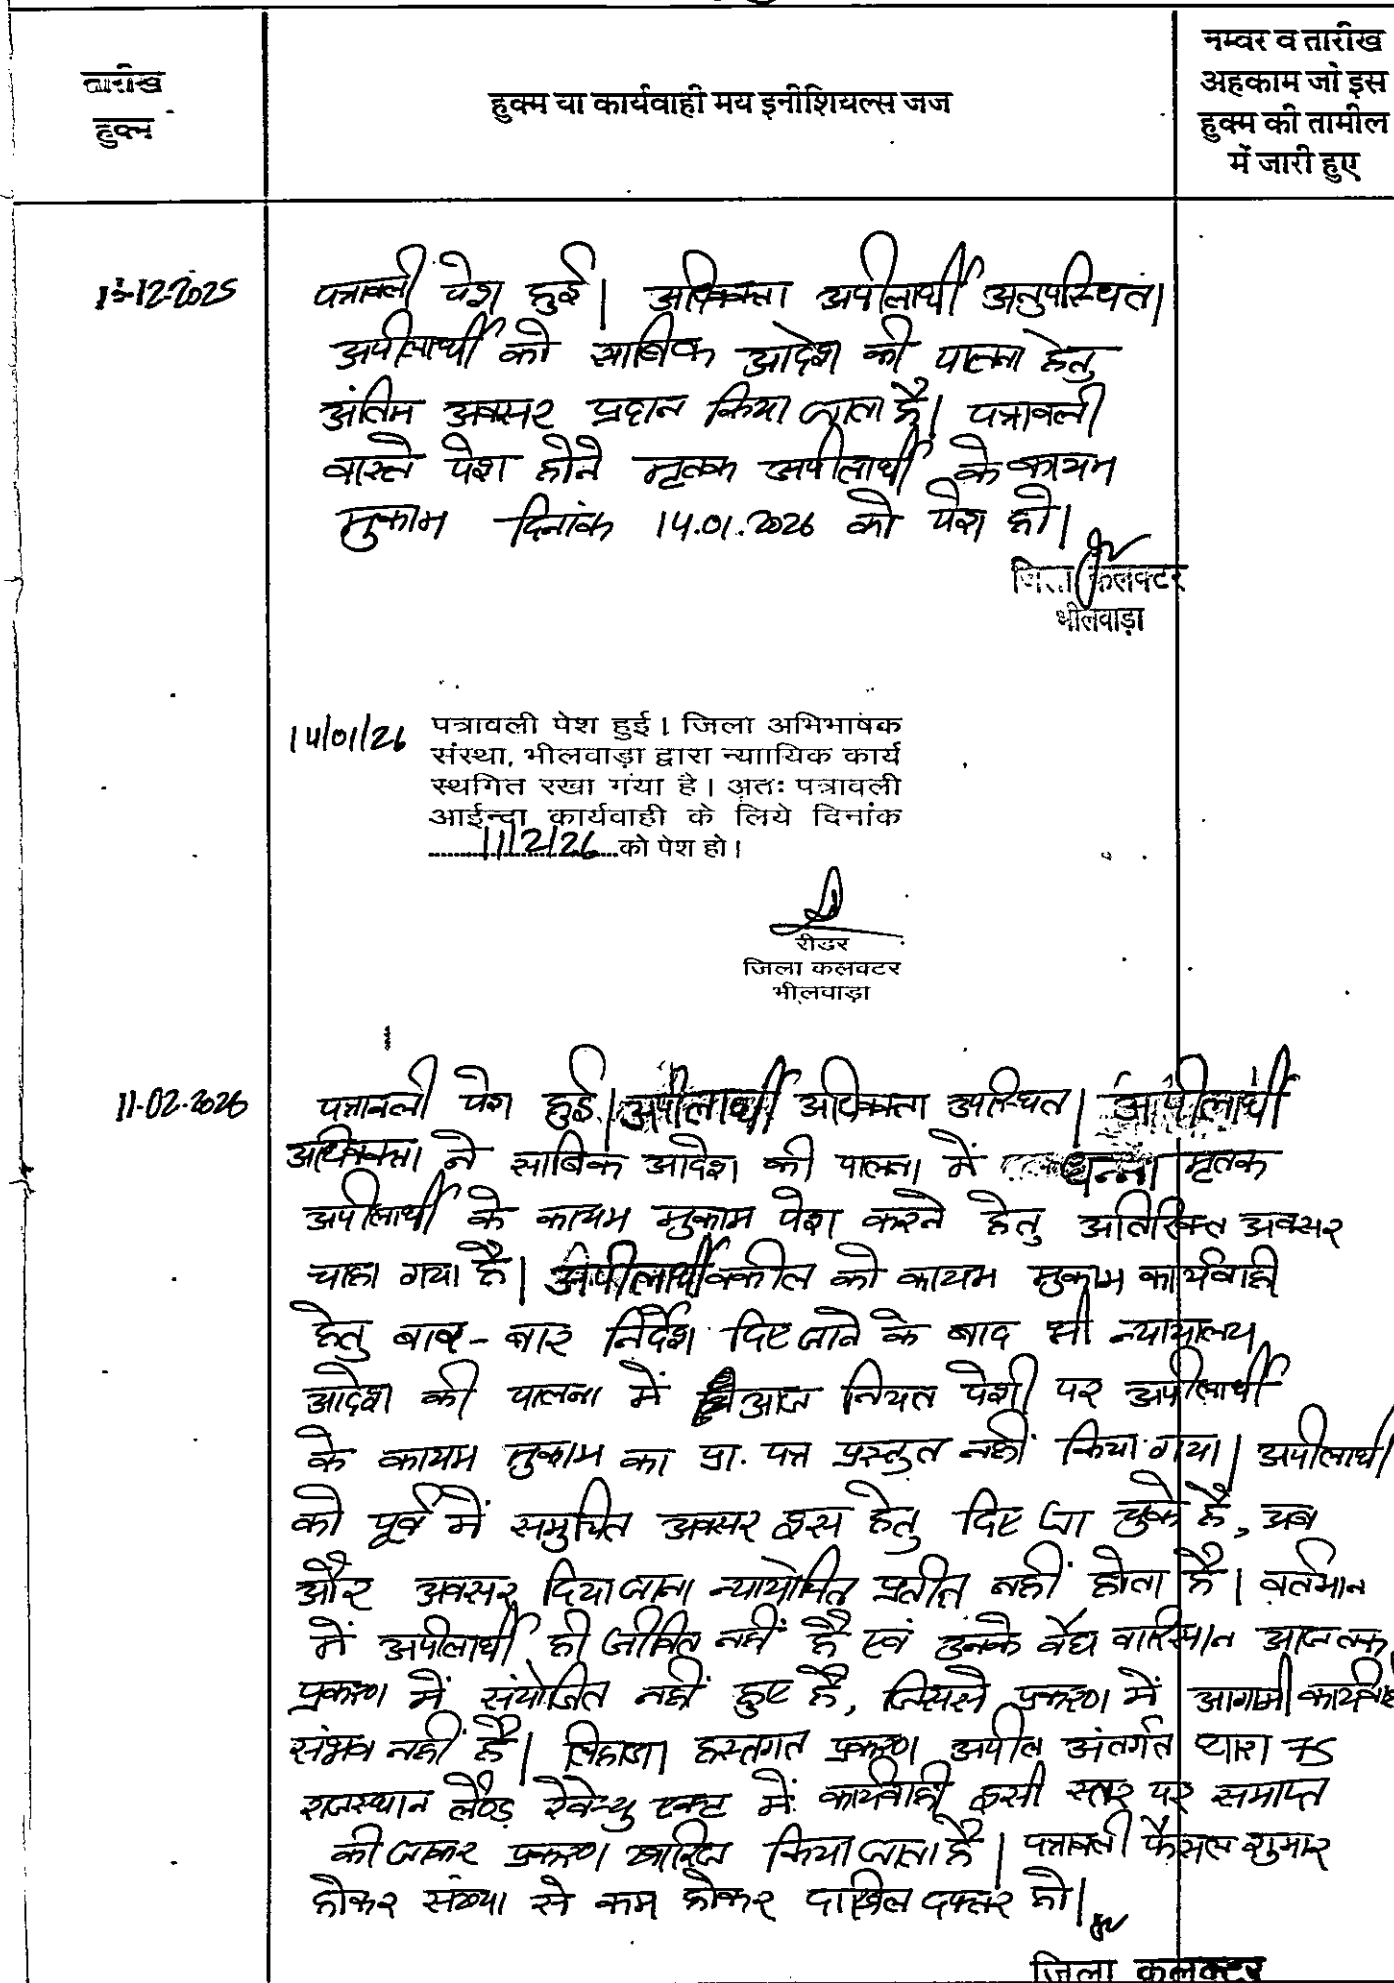 तारीख
हुक्म
हुक्म या कार्यवाही मय इनीशियल्स जज
नम्वर व तारीख
अहकाम जो इस
हुक्म की तामील
में जारी हुए
12-2025 पत्रावली पेश हुई। अधिवक्ता अपीलार्थी अनुपस्थित।
अपीलार्थी को साबिक आदेश की पालना हेतु
अंतिम अवसर प्रदान किया जाता है। पत्रावली
वास्ते पेश होने मृतक अपीलार्थी के कायम
मुकाम दिनांक 14.01.2026 को पेश हो।
जिला कलक्टर
भीलवाड़ा
14/01/26 पत्रावली पेश हुई। जिला अभिभाषक
संस्था, भीलवाड़ा द्वारा न्याायिक कार्य
स्थगित रखा गया है। अतः पत्रावली
आईन्दा कार्यवाही के लिये दिनांक
11/2/26 को पेश हो।
रीडर
जिला कलक्टर
भीलवाड़ा
11-02-2026 पत्रावली पेश हुई। अपीलार्थी अधिवक्ता उपस्थित। अपीलार्थी
अधिवक्ता ने साबिक आदेश की पालना में धन्ना मृतक
अपीलार्थी के कायम मुकाम पेश करने हेतु अतिरिक्त अवसर
चाहा गया है। अपीलार्थी वकील को कायम मुकाम कार्यवाही
हेतु बार-बार निर्देश दिए जाने के बाद भी न्यायालय
आदेश की पालना में आज नियत पेशी पर अपीलार्थी
के कायम मुकाम का प्रा. पत्र प्रस्तुत नहीं किया गया। अपीलार्थी
को पूर्व में समुचित अवसर इस हेतु दिए जा चुके है, अब
और अवसर दिया जाना न्यायोचित प्रतीत नहीं होता है। वर्तमान
में अपीलार्थी ही जीवित नहीं है एवं उनके वैध वारिसान आज तक
प्रकरण में संयोजित नहीं हुए है, जिससे प्रकरण में आगामी कार्यवाही
संभव नहीं है। लिहाजा हस्तगत प्रकरण अपील अंतर्गत धारा 75
राजस्थान लैण्ड रेवेन्यु एक्ट में कार्यवाही इसी स्तर पर समाप्त
की जाकर प्रकरण खारिज किया जाता है। पत्रावली फैसल शुमार
होकर संख्या से कम होकर दाखिल दफ्तर हो।
जिला कलक्टर